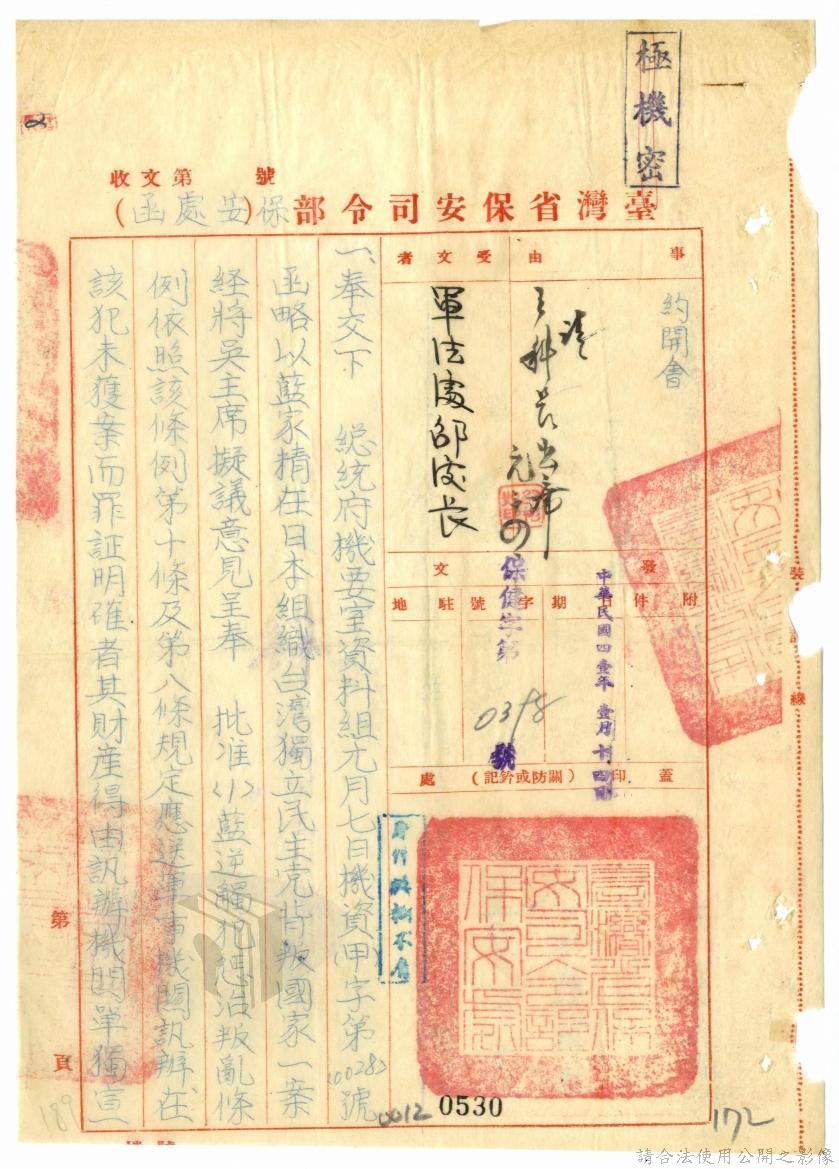 極機密
收文第 號
臺灣省保安司令部(保安處)函
事由
約開會
請
王科長出席
元、
受文者
軍法處邵處長
發文
附件
日期
中華民國四壹年壹月十四日
字號
保健字第0398號
駐地
蓋印(關防或鈐記)處
臺灣省保安司令部保安處
一、奉交下 總統府機要室資料組元月七日機資(甲)字第(0028)號
函略以藍家精在日本組織台湾獨立民主党背叛國家一案
経將吳主席擬議意見呈奉 批准(1)藍逆觸犯懲治叛亂條
例依照該條例第十條及第八條規定應送軍事機關訊辦在
該犯未獲案而罪証明確者其財產得由訊辦機關單獨宣
第 頁
189
0012
0530
172
裝訂線
請合法使用公開之影像